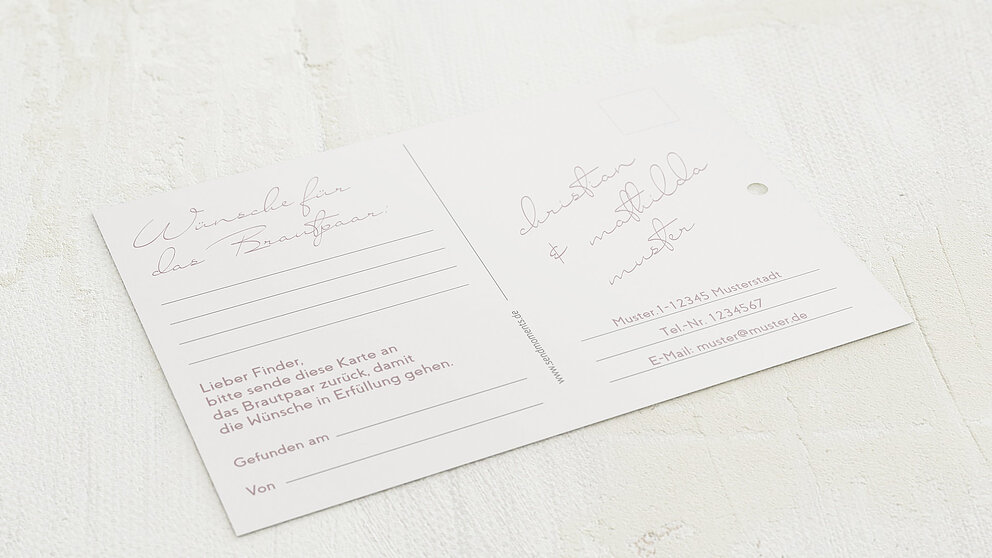 Wünsche für
das Brautpaar:
Lieber Finder,
bitte sende diese Karte an
das Brautpaar zurück, damit
die Wünsche in Erfüllung gehen.
Gefunden am
Von
www.sendmoments.de
christian
& mathilda
muster
Muster.1-12345 Musterstadt
Tel.-Nr. 1234567
E-Mail: muster@muster.de